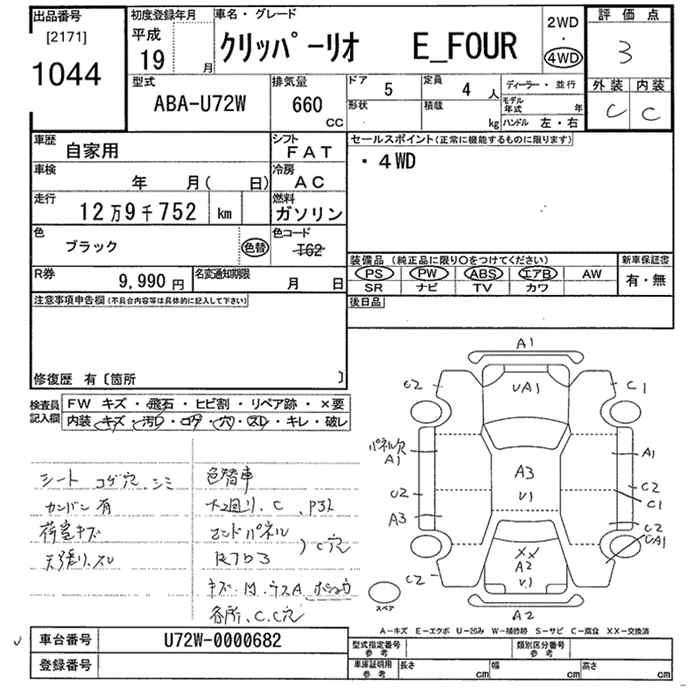 出品番号
[2171]
1044
初度登録年月
平成
19 月
車名・グレード
クリッパーリオ E_FOUR
2WD
・
4WD
評価点
3
型式
ABA-U72W
排気量
660
CC
ドア
5
定員
4 人
形状
積載
kg
ディーラー・並行
モデル年式 年
ハンドル 左・右
外装 内装
C C
車歴
自家用
シフト
FAT
車検
年 月( 日)
冷房
AC
走行
12万9千752 km
燃料
ガソリン
色
ブラック
色替
色コード
T62
R券
9,990円
名変通知期限
月 日
セールスポイント(正常に機能するものに限ります)
・4WD
装備品 (純正品に限り〇をつけてください)
PS PW ABS エアB AW
SR ナビ TV カワ
新車保証書
有・無
後日品
注意事項申告欄(不具合内容等は具体的に記入して下さい)
修復歴 有〔箇所 〕
検査員記入欄
FW キズ・飛石・ヒビ割・リペア跡・×要
内装・キズ・汚レ・コゲ・穴・スレ・キレ・破レ
シート コゲ穴、シミ
カンバン有
荷室キズ
天張り、スレ
色替車
C
エンドパネル
C穴
各所、C、C穴
A1
C2
UA1
C1
パネル穴
A1
A1
A3
U1
U2
C2
A3
C1
C2
UA1
XX
A2
U1
C2
A2
スペア
A-キズ E-エクボ U-凹み W-補修跡 S-サビ C-腐食 XX-交換済
車台番号
U72W-0000682
登録番号
型式指定番号
参考
類別区分番号
参考
車庫証明用
参考
長さ cm
幅 cm
高さ cm